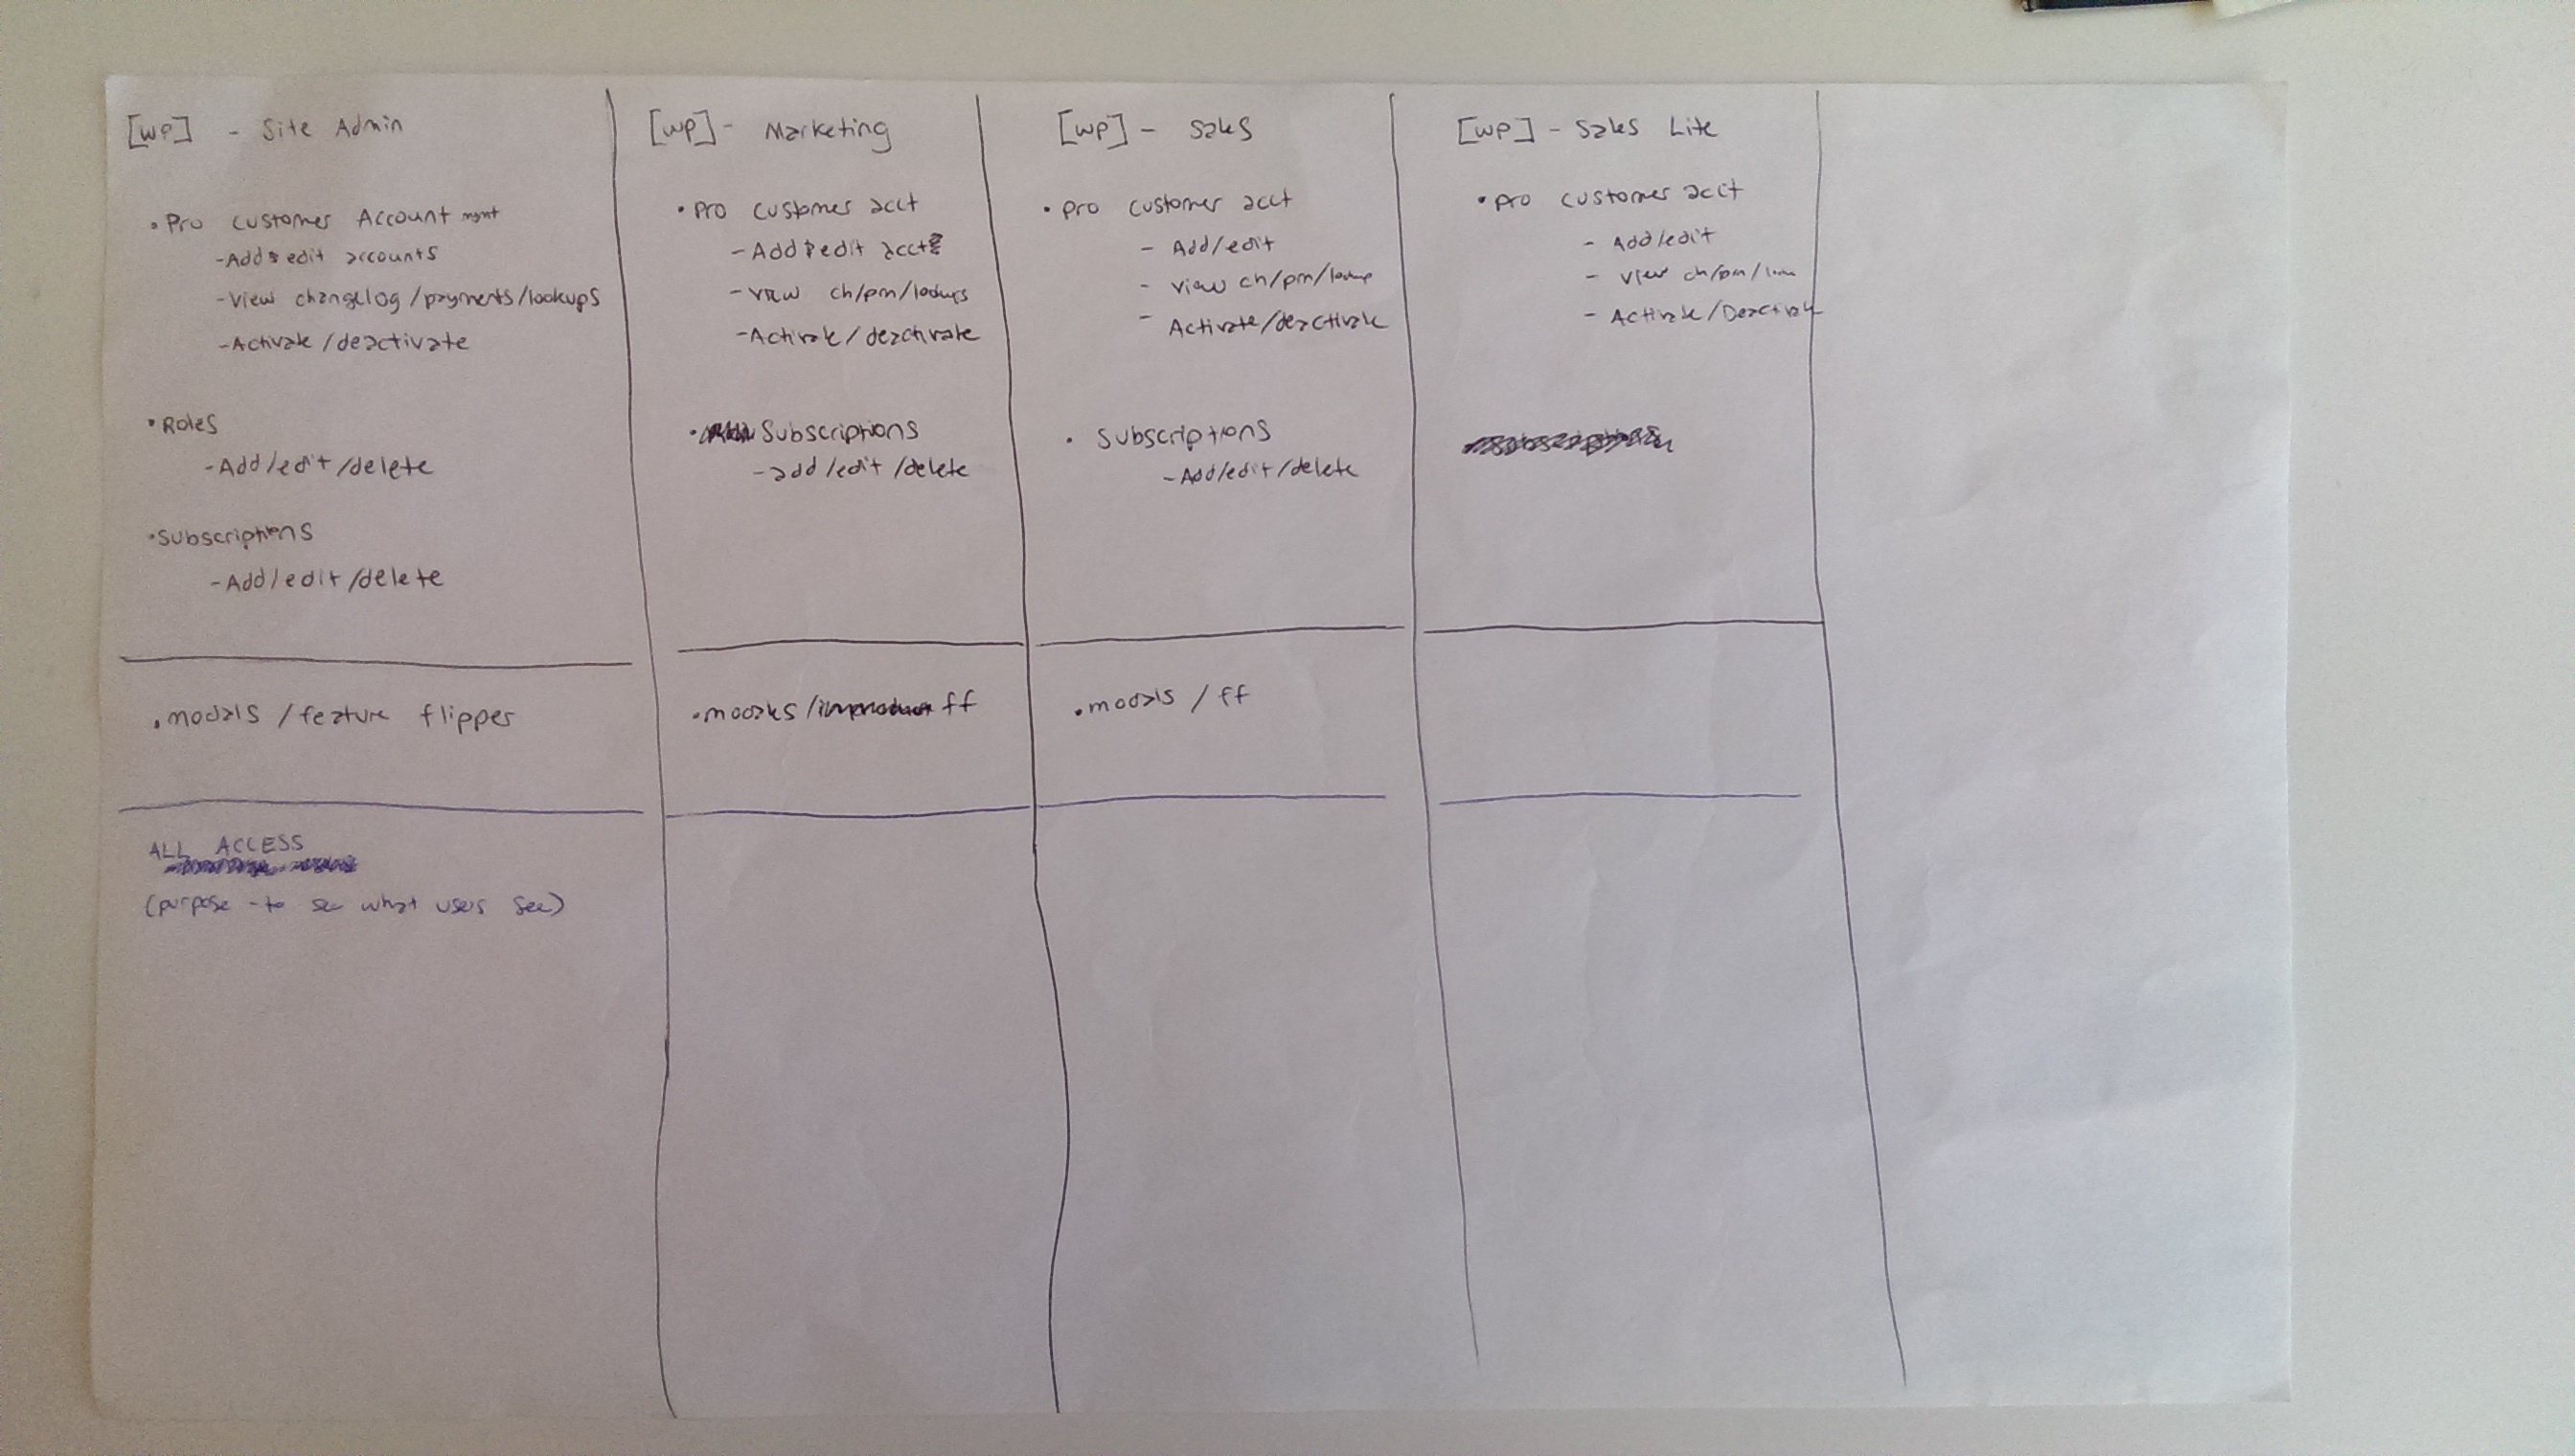 [WP] - Site Admin
• Pro customer Account mgmt
- Add & edit accounts
- View changelog / payments / lookups
- Activate / deactivate
• Roles
- Add / edit / delete
• Subscriptions
- Add / edit / delete
• modals / feature flipper
ALL ACCESS
(purpose - to see what users see)
[WP] - Marketing
• Pro customer acct
- Add & edit accts
- view ch/pm/lookups
- Activate / deactivate
• Subscriptions
- add / edit / delete
• modals / ff
[WP] - Sales
• Pro customer acct
- Add/edit
- view ch/pm/lookup
- Activate/deactivate
• Subscriptions
- Add/edit/delete
• modals / ff
[WP] - Sales Lite
• Pro customer acct
- Add/edit
- view ch/pm/
- Activate/Deactivate